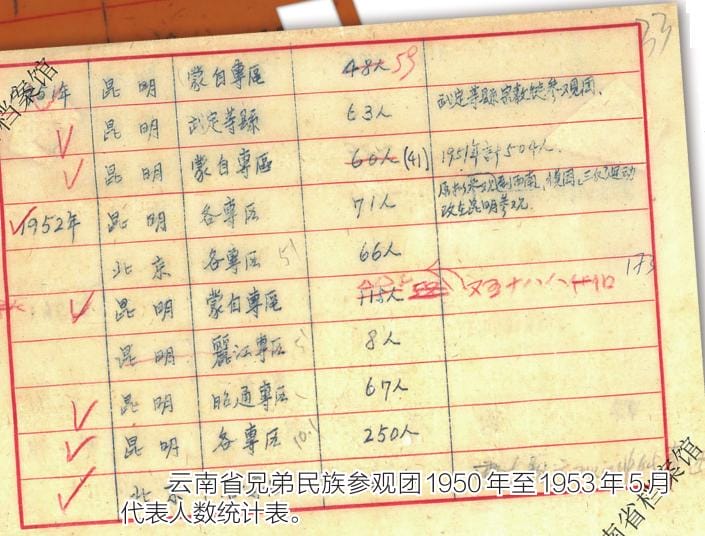 33
51年 昆明 蒙自專區 48人 59
昆明 武定等縣 63人 武定等縣宗教徒参观团.
昆明 蒙自專區 60人 (41) 1951年計504人.
1952年 昆明 各專区 71人 西南, 三反運动
改在昆明参观.
北京 各專区 5 66人
昆明 蒙自專區 115人 173
昆明 麗江專区 5 8人
昆明 昭通專區 67人
昆明 各專区 10.1 250人
北京
云南省兄弟民族参观团1950年至1953年5月
代表人数统计表。
档案馆
南省档案馆